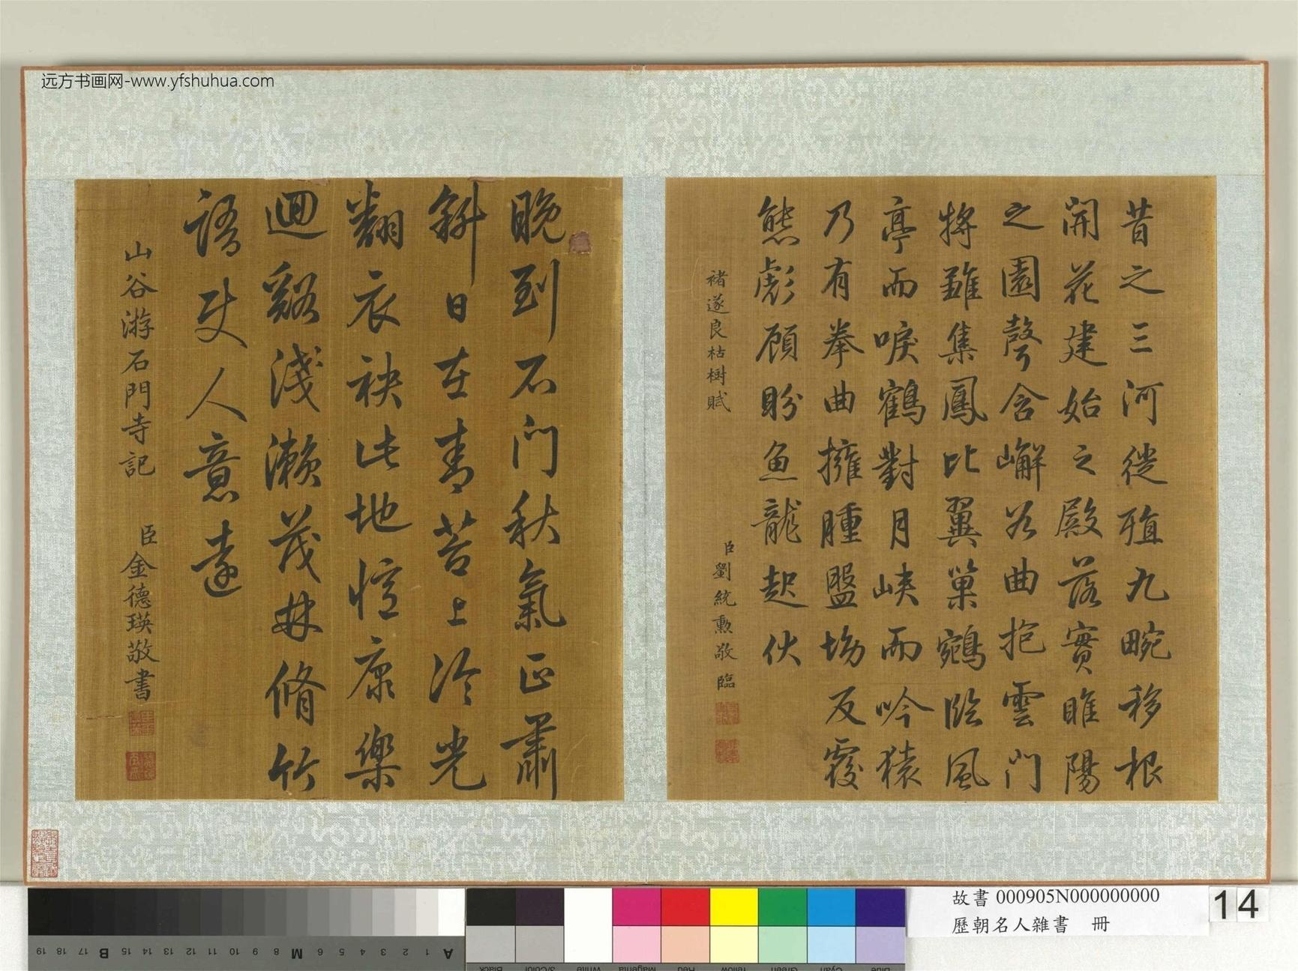 远方书画网-www.yfshuhua.com
昔之三河徙殖九畹移根
開花建始之殿落實睢陽
之園聲含嶰谷曲抱雲門
將雛集鳳比翼巢鵷臨風
亭而唳鶴對月峽而吟猿
乃有拳曲擁腫盤坳反覆
熊彪顧盼魚龍起伏
褚遂良枯樹賦
臣劉統勳敬臨
晚到石門秋氣正蕭
斜日在青苔上泠光
翻衣袂此地恠康樂
迴谿淺瀨茂林脩竹
語時人意遠
山谷游石門寺記
臣金德瑛敬書
故書 000905N000000000
歷朝名人雜書 冊
14
19 18 17 16 15 14 13 12 11 10 9 8 7 6 5 4 3 2 1
B M A